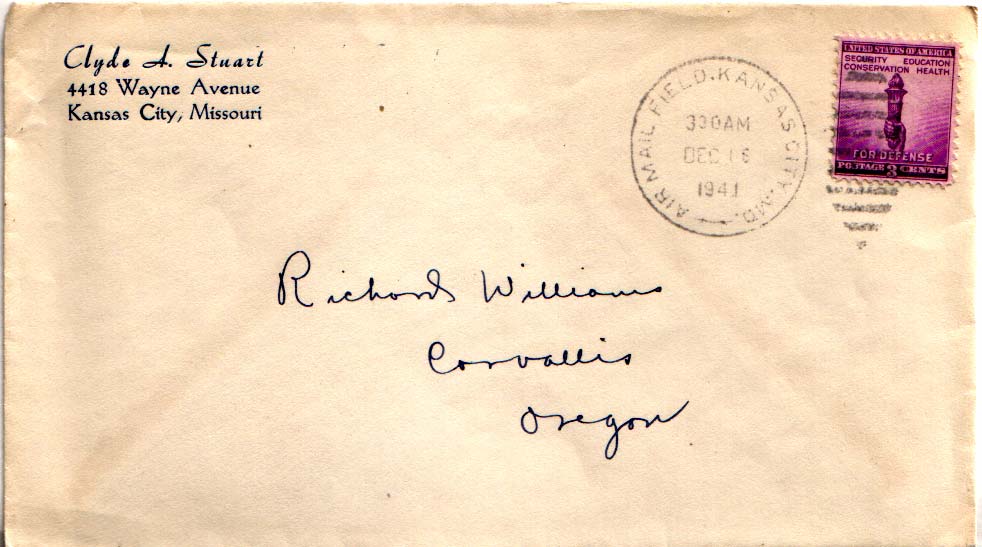 Clyde A. Stuart
4418 Wayne Avenue
Kansas City, Missouri
AIR MAIL FIELD. KANSAS CITY. MO.
330AM
DEC 16
1941
UNITED STATES OF AMERICA
SECURITY EDUCATION
CONSERVATION HEALTH
FOR DEFENSE
POSTAGE 3 CENTS
Richard Williams
Corvallis
Oregon